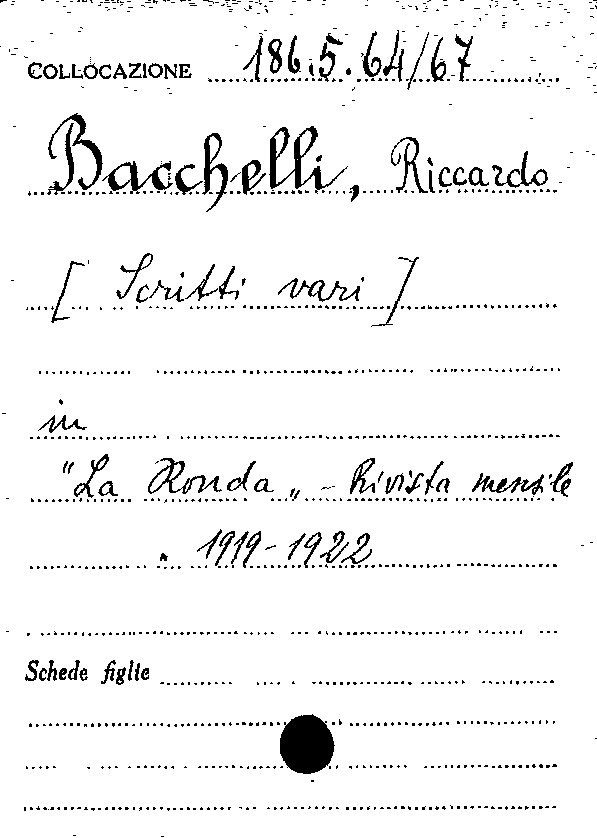 COLLOCAZIONE 186.5.64/67
Bacchelli, Riccardo
[ Scritti vari ]
in
"La Ronda„ - Rivista mensile
1919-1922
Schede figlie